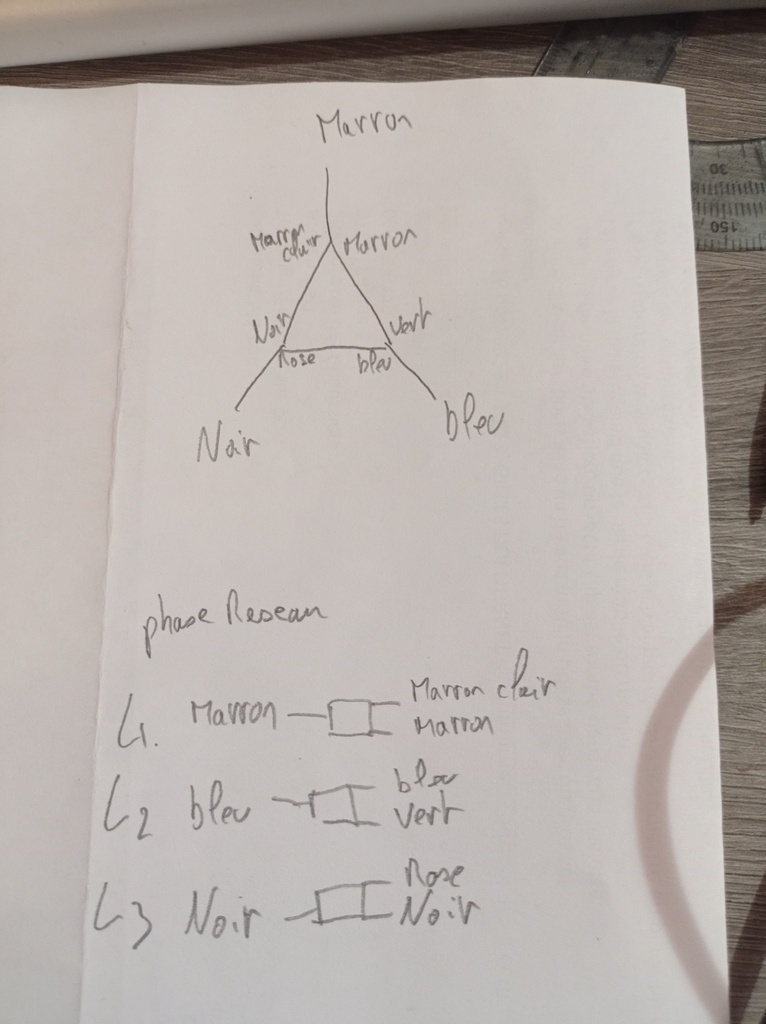 Marron
Marron clair
Marron
Noir
Vert
Rose
bleu
Noir
bleu
phase Reseau
L1. Marron
Marron clair
Marron
L2 bleu
bleu
Vert
L3 Noir
Rose
Noir
30
150